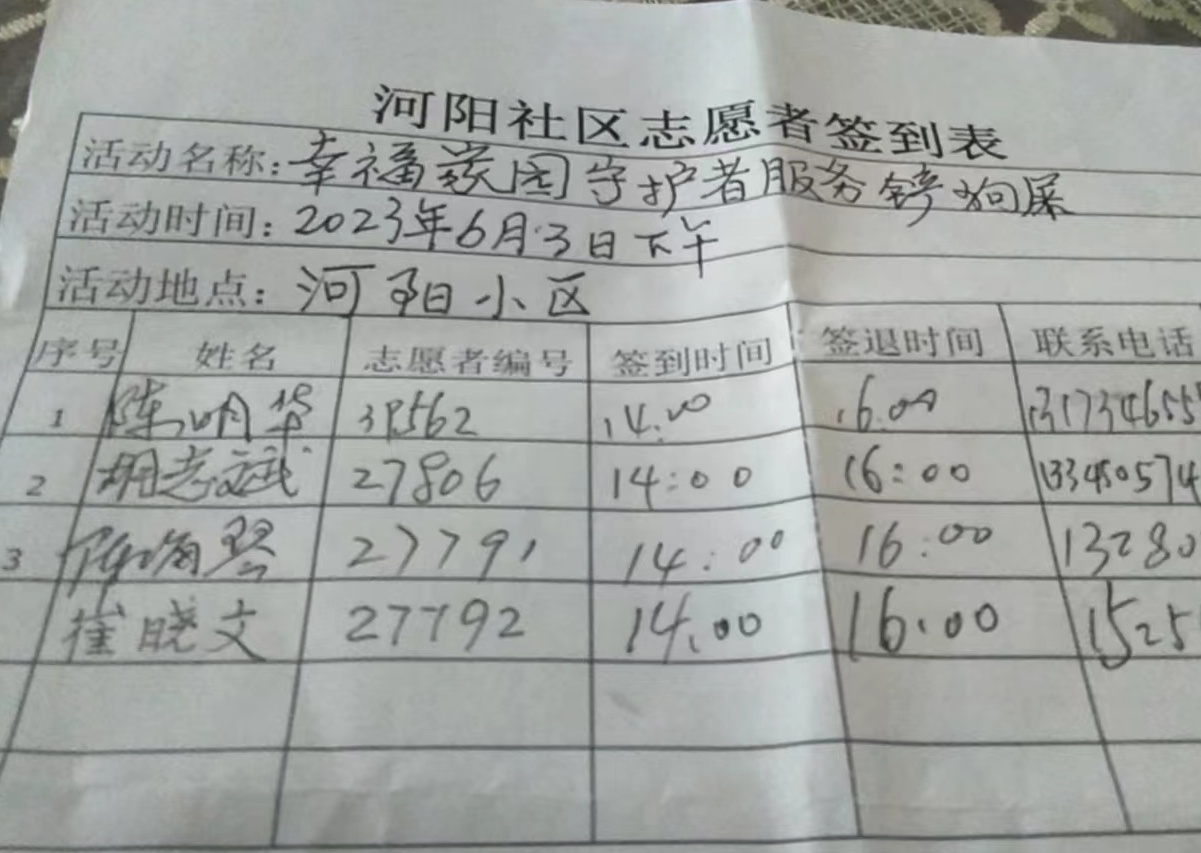 河阳社区志愿者签到表
活动名称:幸福家园守护者服务铲狗屎
活动时间:2023年6月3日下午
活动地点:河阳小区
序号 姓名 志愿者编号 签到时间 签退时间 联系电话
1 陈明华 14:00 16:00 131734655
2 胡志斌 27806 14:00 16:00 133450574
3 27791 14:00 16:00 13280
崔晓文 27792 14:00 16:00 1525